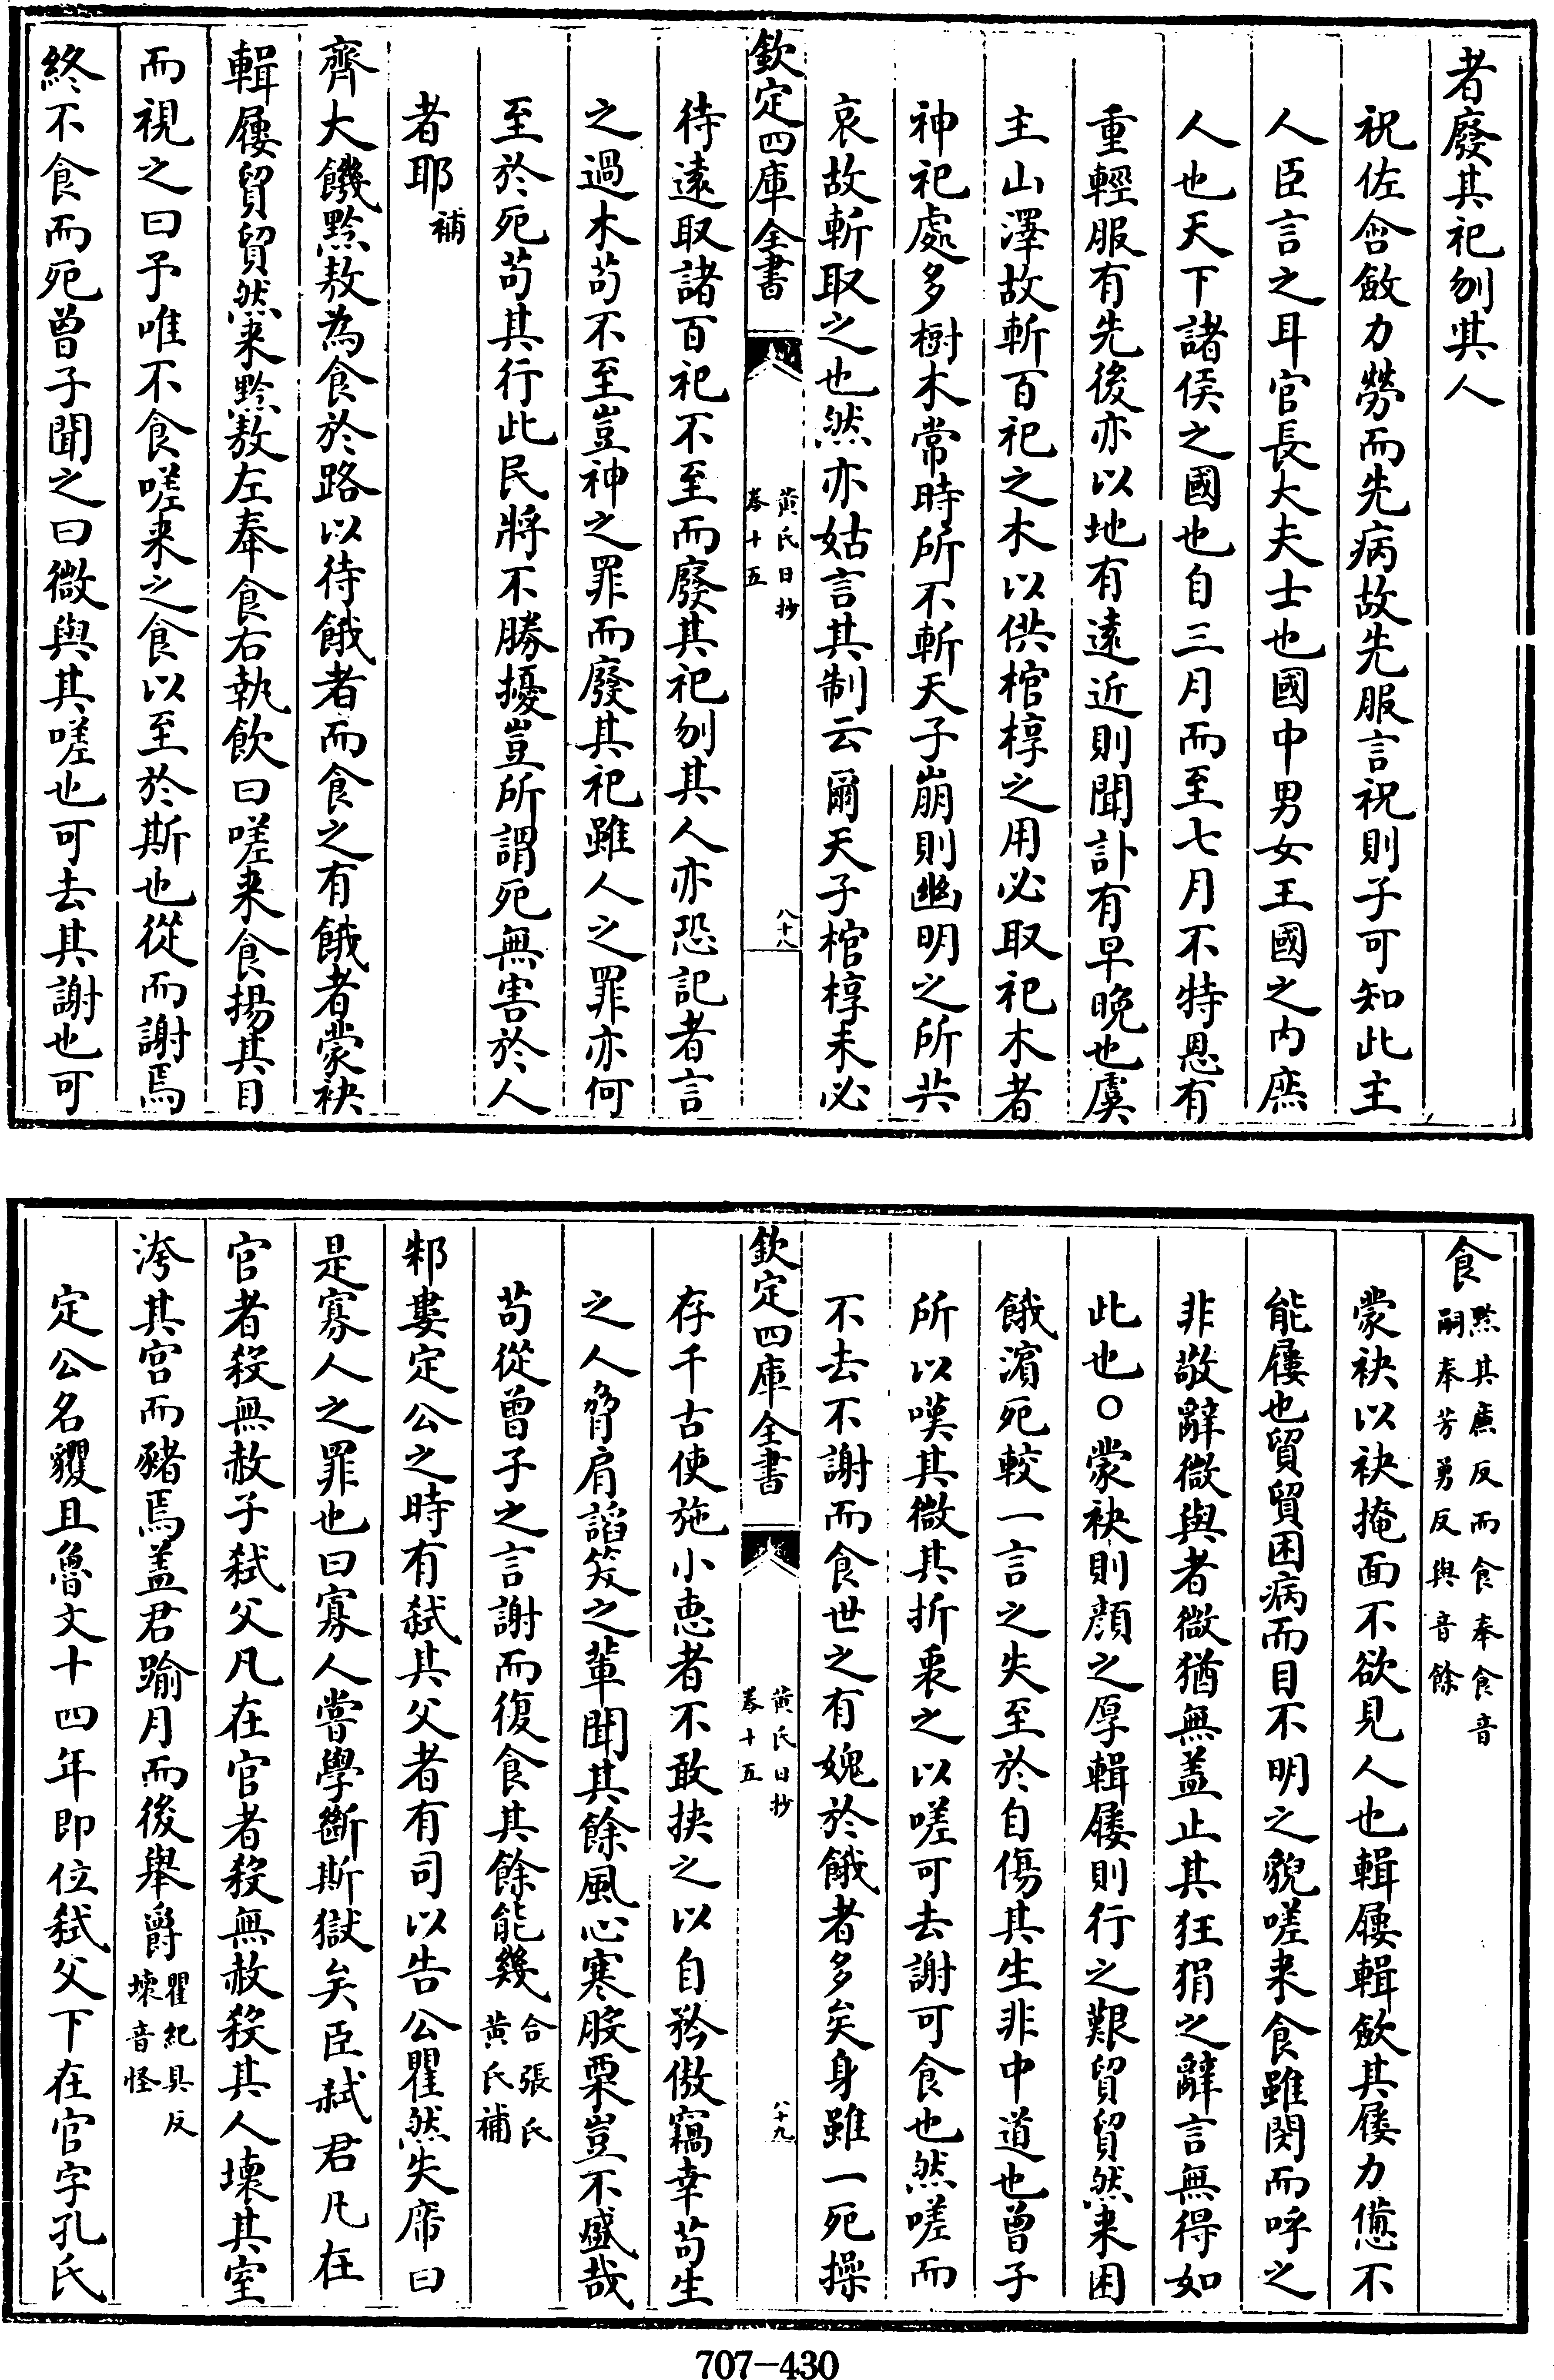 者廢其祀刎其人
祝佐含斂力勞而先病故先服言祝則子可知此主
人臣言之耳官長大夫士也國中男女王國之内庶
人也天下諸侯之國也自三月而至七月不特恩有
重輕服有先後亦以地有遠近則聞訃有早晩也虞
主山澤故斬百祀之木以供棺椁之用必取祀木者
神祀處多樹木常時所不斬天子崩則幽明之所共
哀故斬取之也然亦姑言其制云爾天子棺椁未必
欽定四庫全書
黄氏日抄
卷十五
八十八
待遠取諸百祀不至而廢其祀刎其人亦恐記者言
之過木苟不至豈神之罪而廢其祀雖人之罪亦何
至於死苟其行此民將不勝擾豈所謂死無害於人
者耶補
齊大饑黔敖為食於路以待餓者而食之有餓者蒙袂
輯屨貿貿然来黔敖左奉食右執飲曰嗟来食揚其目
而視之曰予唯不食嗟来之食以至於斯也從而謝焉
終不食而死曾子聞之曰微與其嗟也可去其謝也可
食黔其廉反而食奉食音
嗣奉芳勇反與音餘
蒙袂以袂掩面不欲見人也輯屨輯斂其屨力憊不
能屨也貿貿困病而目不明之貌嗟来食雖閔而呼之
非敬辭微與者微猶無蓋止其狂狷之辭言無得如
此也○蒙袂則顔之厚輯屨則行之艱貿貿然来困
餓濱死較一言之失至於自傷其生非中道也曾子
所以嘆其微其折衷之以嗟可去謝可食也然嗟而
不去不謝而食世之有媿於餓者多矣身雖一死操
欽定四庫全書
黄氏日抄
卷十五
八十九
存千古使施小惠者不敢挾之以自矜傲竊幸苟生
之人脅肩諂笑之輩聞其餘風心寒股栗豈不盛哉
苟從曾子之言謝而復食其餘能幾合張氏
黄氏補
邾婁定公之時有弑其父者有司以告公瞿然失席曰
是寡人之罪也曰寡人嘗學斷斯獄矣臣弑君凡在
官者殺無赦子弑父凡在官者殺無赦殺其人壞其室
洿其宫而豬焉蓋君踰月而後舉爵瞿紀具反
壞音怪
定公名貜且魯文十四年即位弑父下在官字孔氏
707-430